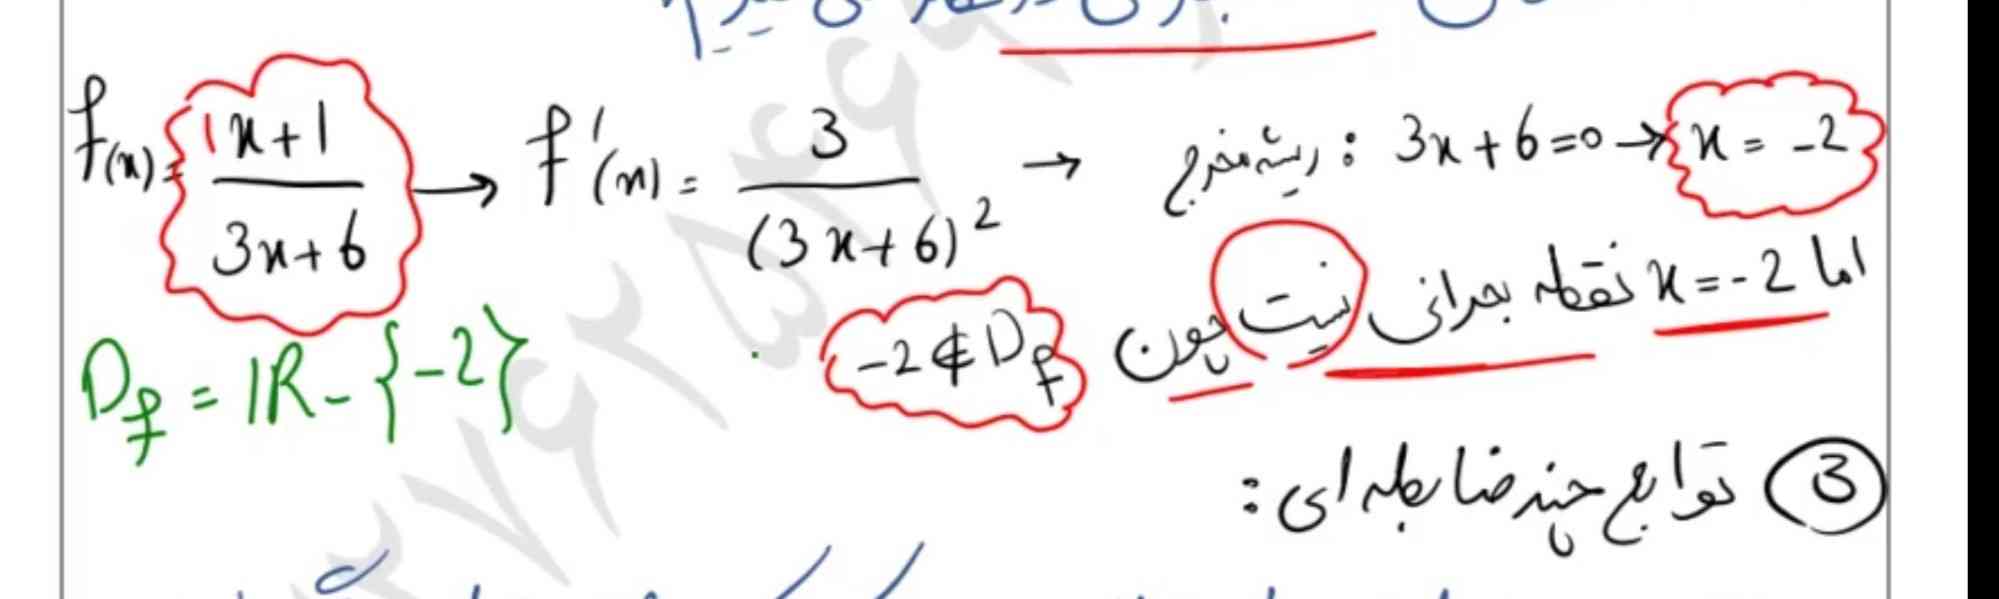 f(x) = 1x+1 / 3x+6 → f'(x) = 3 / (3x+6)² → ریشه مخرج : 3x+6=0 → x = -2
اما x=-2 نقطه بحرانی نیست چون -2 ∉ D_f
D_f = ℝ - {-2}
③ توابع چند ضابطه ای :